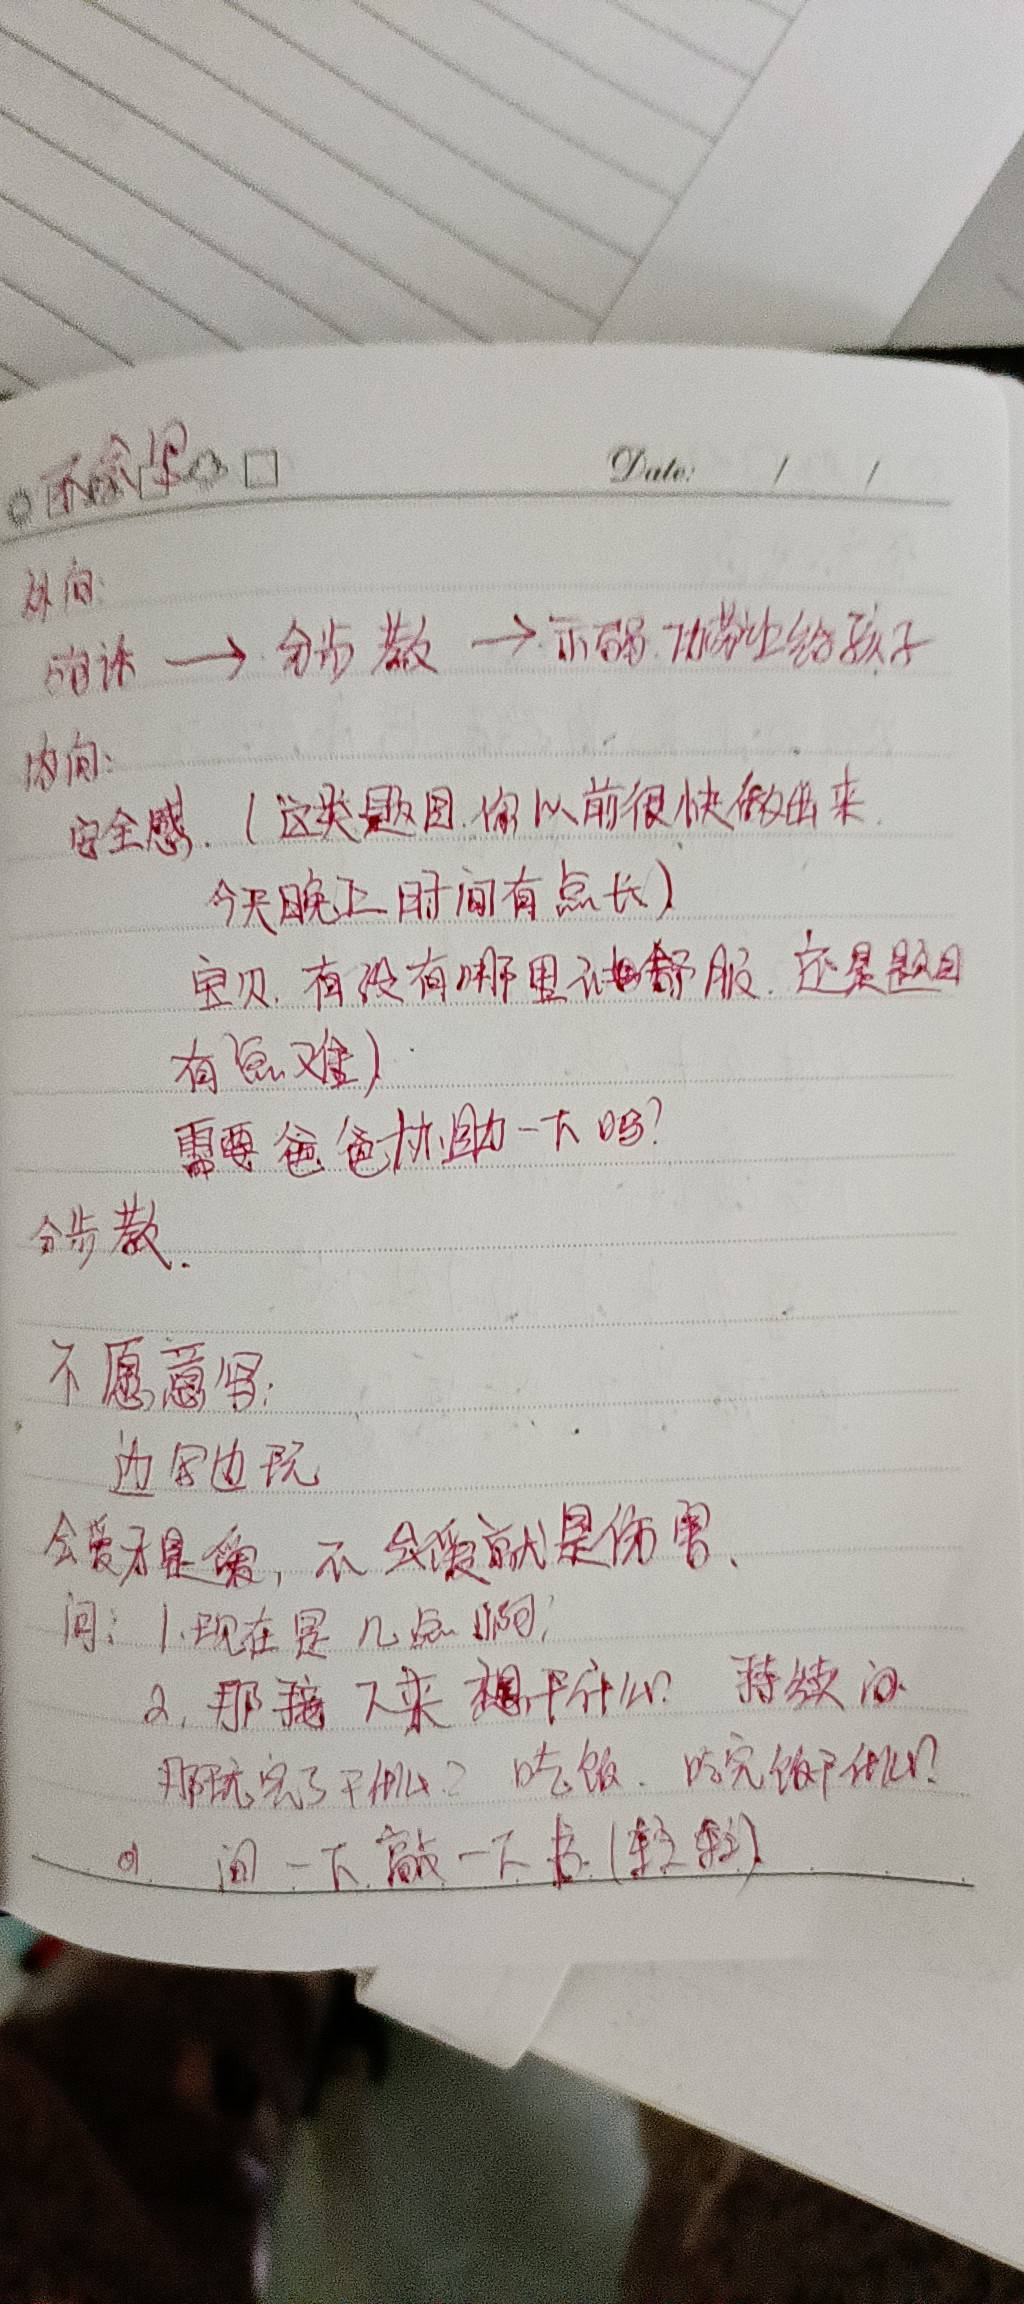 不会写
Date: / /
外向:
→ 分步教 → 示弱. 给孩子
内向:
安全感. (这类题目. 你以前很快做出来.
今天晚上时间有点长)
宝贝. 有没有哪里不舒服. 还是题目
有点难)
需要爸爸协助一下吗?
分步教.
不愿意写:
边写边玩
会爱才是爱, 不会爱就是伤害、
问: 1.现在是几点啊;
2. 那接下来想干什么? 持续问.
那玩完了干什么? 吃饭. 吃完饭干什么?
问一下敲一下书. (轻轻)